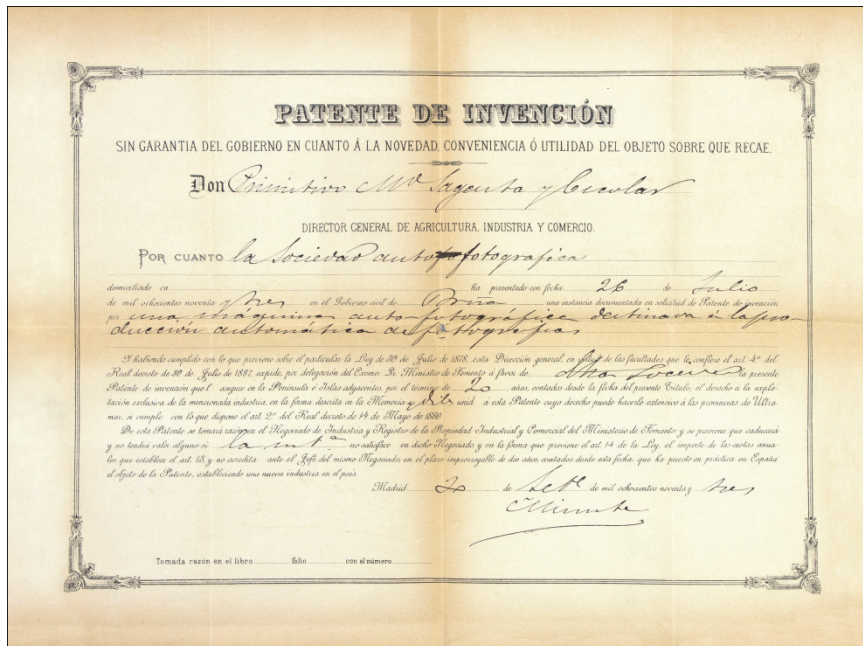 PATENTE DE INVENCIÓN
SIN GARANTIA DEL GOBIERNO EN CUANTO Á LA NOVEDAD, CONVENIENCIA Ó UTILIDAD DEL OBJETO SOBRE QUE RECAE.
Don Primitivo Mº Sagasta y Escolar
DIRECTOR GENERAL DE AGRICULTURA, INDUSTRIA Y COMERCIO.
POR CUANTO la Sociedad auto fotografica
domiciliado en ha presentado con fecha 26 de Julio
de mil ochocientos noventa y tres en el Gobierno civil de una instancia documentada en solicitud de Patente de invención
por una máquina auto-fotográfica destinada á la pro-
ducción automática de fotografias
Y habiendo cumplido con lo que previene sobre el particular la Ley de 30 de Julio de 1878, esta Dirección general, en de las facultades que le confiere el art. 4º del
Real decreto de 30 de Julio de 1887, expide, por delegación del Excmo. Sr. Ministro de Fomento á favor de dha Sociedad la presente
Patente de invención que l asegure en la Península é Islas adyacentes, por el término de 20 años, contados desde la fecha del presente Título, el derecho á la explo-
tación exclusiva de la mencionada industria, en la forma descrita en la Memoria y dib unid á esta Patente cuyo derecho puede hacerle extensivo á las provincias de Ultra-
mar, si cumple con lo que dispone el art. 2º del Real decreto de 14 de Mayo de 1880.
De esta Patente se tomará razón en el Negociado de Industria y Registro de la Propiedad Industrial y Comercial del Ministerio de Fomento; y se previene que caducará
y no tendrá valor alguno si la intª no satisface en dicho Negociado y en la forma que previene el art. 14 de la Ley, el importe de las cuotas anua-
les que establece el art. 13, y no acredita ante el Jefe del mismo Negociado, en el plazo improrrogable de dos años, contados desde esta fecha, que ha puesto en práctica en España
el objeto de la Patente, estableciendo una nueva industria en el país.
Madrid 20 de Setbe de mil ochocientos noventa y tres
Minuta
Tomada razón en el libro folio con el número